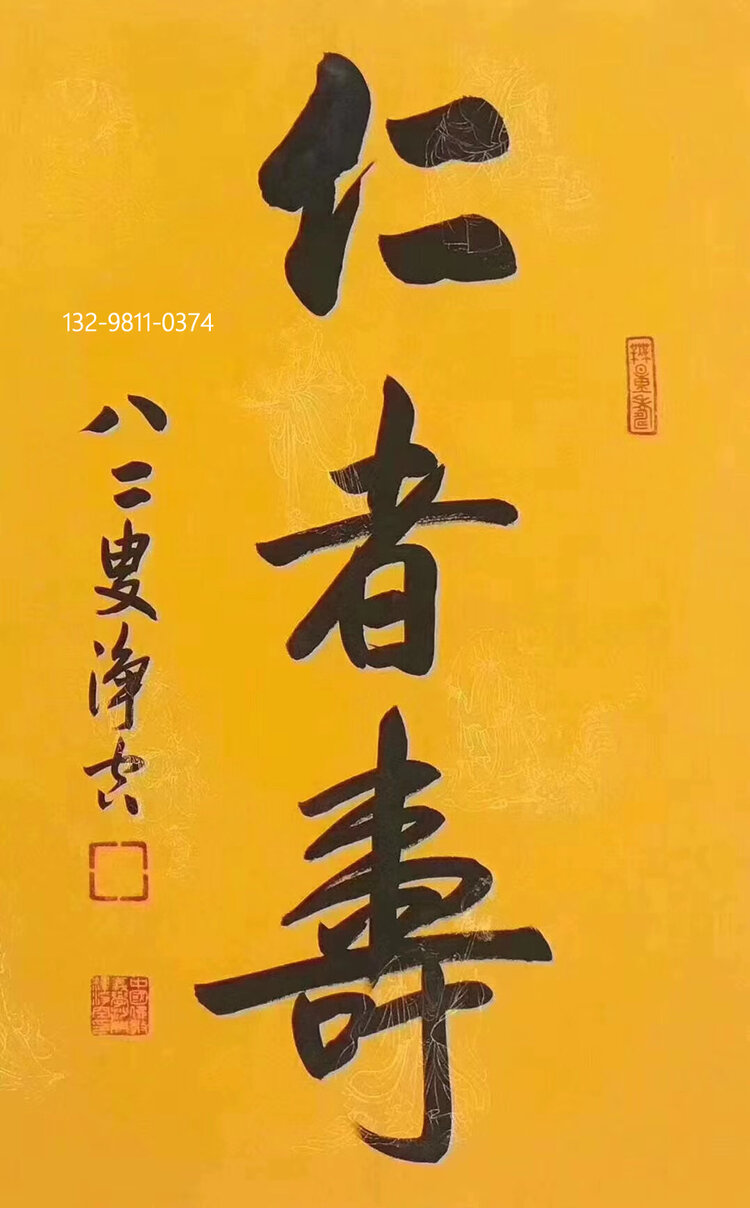 仁者壽
132-9811-0374
八二叟淨空